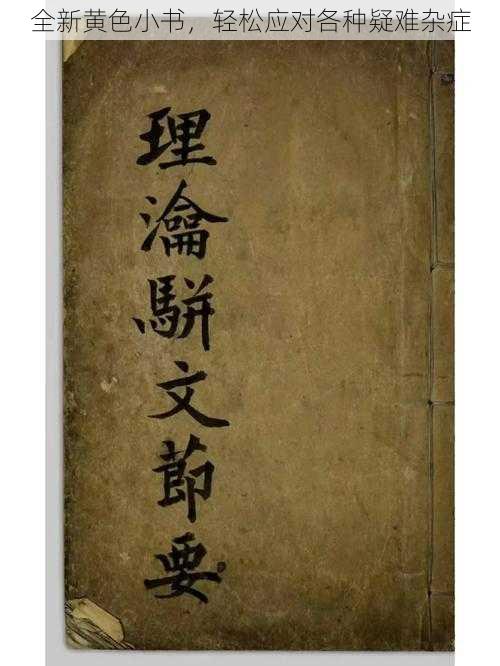 全新黄色小书，轻松应对各种疑难杂症
理瀹駢文節要